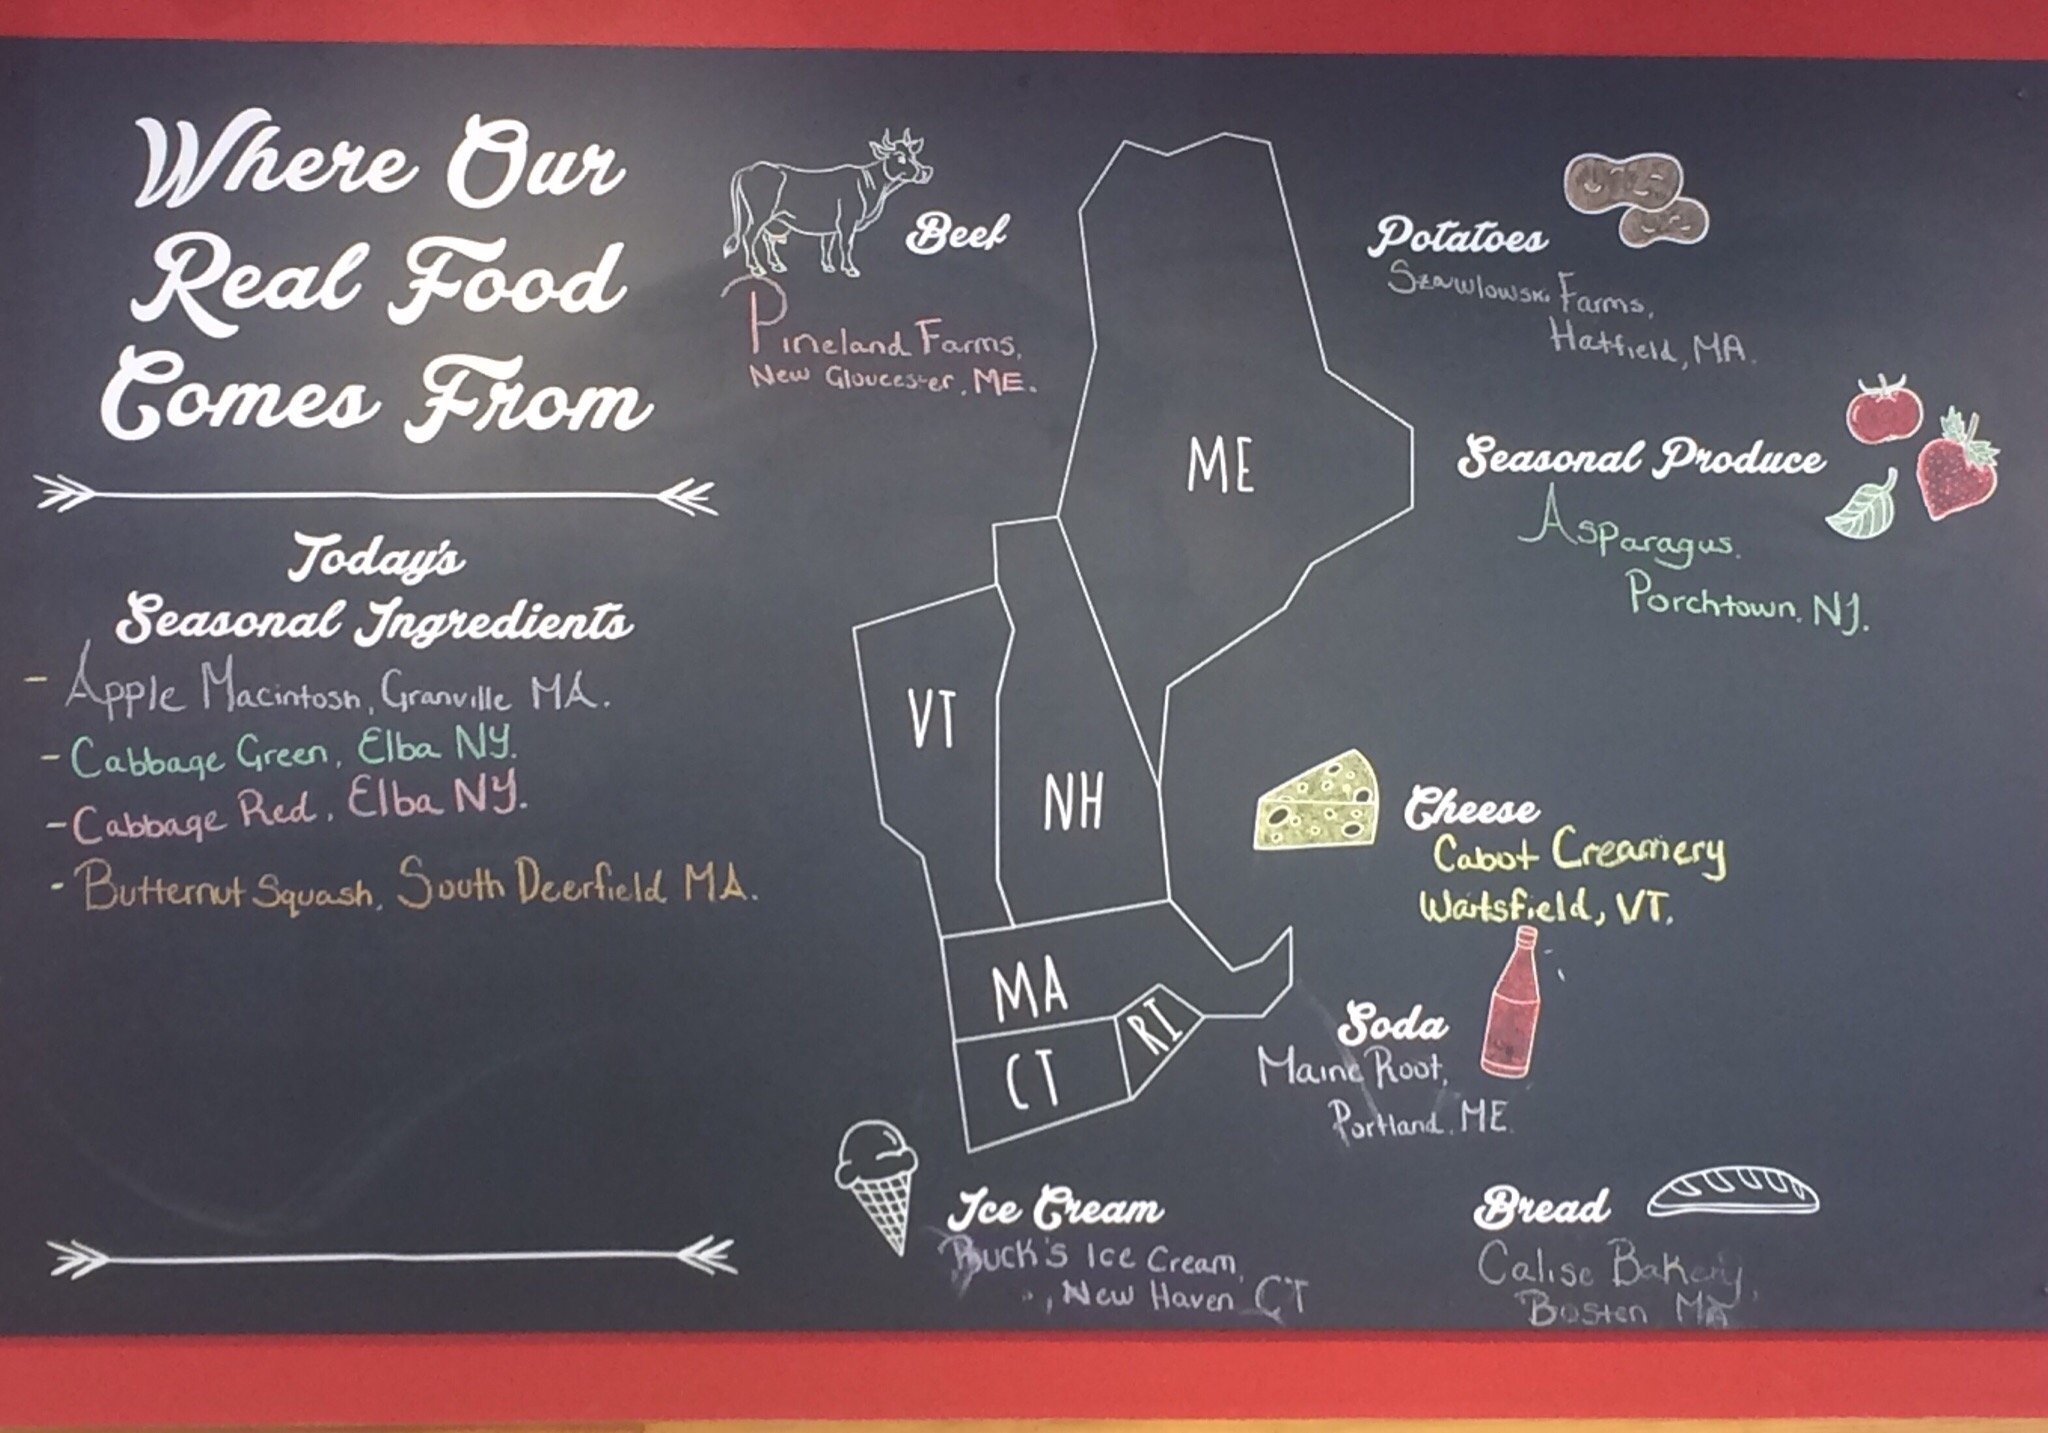 Where Our
Real Food
Comes From
Today's
Seasonal Ingredients
- Apple Macintosh, Granville MA.
- Cabbage Green, Elba NY.
- Cabbage Red, Elba NY.
- Butternut Squash, South Deerfield MA.
Beef
Pineland Farms,
New Gloucester, ME.
ME
VT
NH
MA
RI
CT
Potatoes
Szawlowski Farms,
Hatfield, MA.
Seasonal Produce
Asparagus.
Porchtown. NJ.
Cheese
Cabot Creamery
Waitsfield, VT.
Soda
Maine Root,
Portland, ME.
Ice Cream
Buck's Ice Cream,
, New Haven CT
Bread
Calise Bakery,
Bosten MA